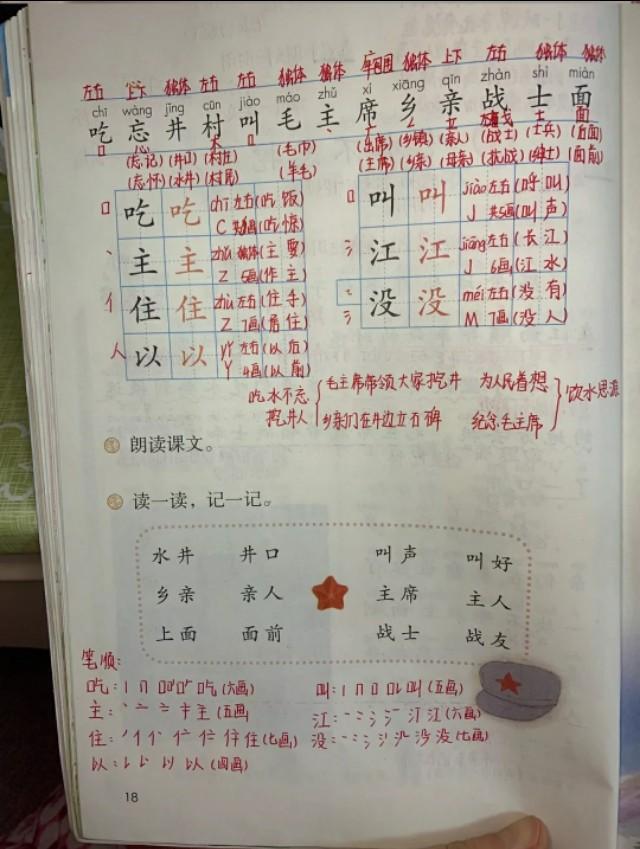 左右 上下 独体 左右 左右 独体 独体 半包围 独体 上下 左右 独体 独体
chī wàng jǐng cūn jiào máo zhǔ xí xiāng qīn zhàn shì miàn
吃 忘 井 村 叫 毛 主 席 乡 亲 战 士 面
口 心 木 口 丶 立 戈 士 面
(忘记) (井口) (村庄) (毛巾) (出席) (乡镇) (亲人) (战士) (士兵) (后面)
(忘怀) (水井) (村尾) (羊毛) (主席) (乡亲) (母亲) (抗战) (绅士) (面前)
口 吃 吃 chī 左右 (吃饭)
C 共6画 (吃惊)
丶 主 主 zhǔ 独体 (主要)
Z 5画 (作主)
亻 住 住 zhù 左右 (住手)
Z 7画 (居住)
人 以 以 yǐ 左右 (以后)
Y 4画 (以前)
口 叫 叫 jiào 左右 (呼叫)
J 共5画 (叫声)
氵 江 江 jiāng 左右 (长江)
J 6画 (江水)
氵 没 没 méi 左右 (没有)
M 7画 (没人)
吃水不忘
挖井人
毛主席领大家挖井 为人民着想
乡亲们在井边立石碑 纪念毛主席
饮水思源
朗读课文。
读一读,记一记。
水井 井口 叫声 叫好
乡亲 亲人 主席 主人
上面 面前 战士 战友
笔顺:
吃: 丨 冂 口 吃 (六画) 叫: 丨 冂 口 叫 (五画)
主: 丶 主 (五画) 江: 丶 冫 氵 江 (六画)
住: 丿 亻 住 (七画) 没: 丶 冫 氵 没 (七画)
以: 以 (四画)
18